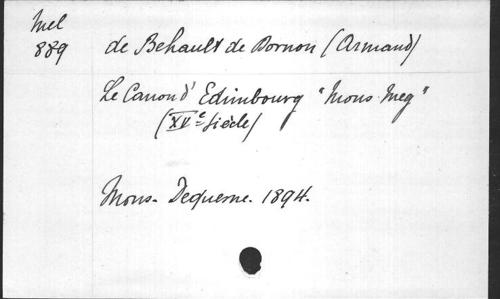 Mel
889
de Behault de Dornon (Armand)
Le Canon d'Edimbourg "Mons Meg"
(XVe siècle)
Mons. Dequesne. 1894.